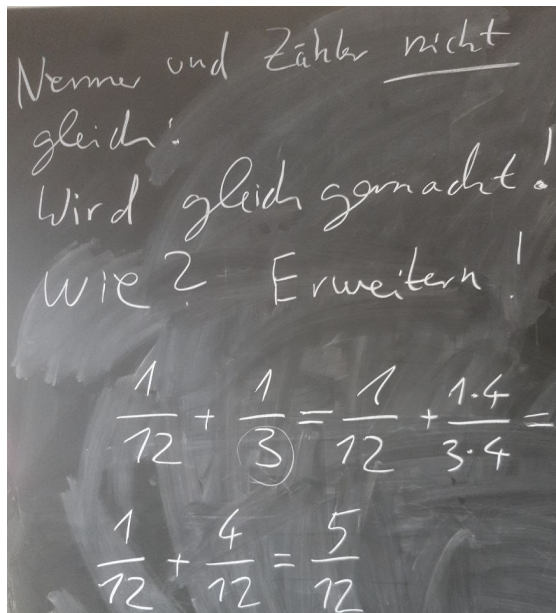 Nenner und Zähler nicht
gleich:
Wird gleich gemacht!
Wie? Erweitern!
1/12 + 1/3 = 1/12 + 1·4/3·4 =
1/12 + 4/12 = 5/12